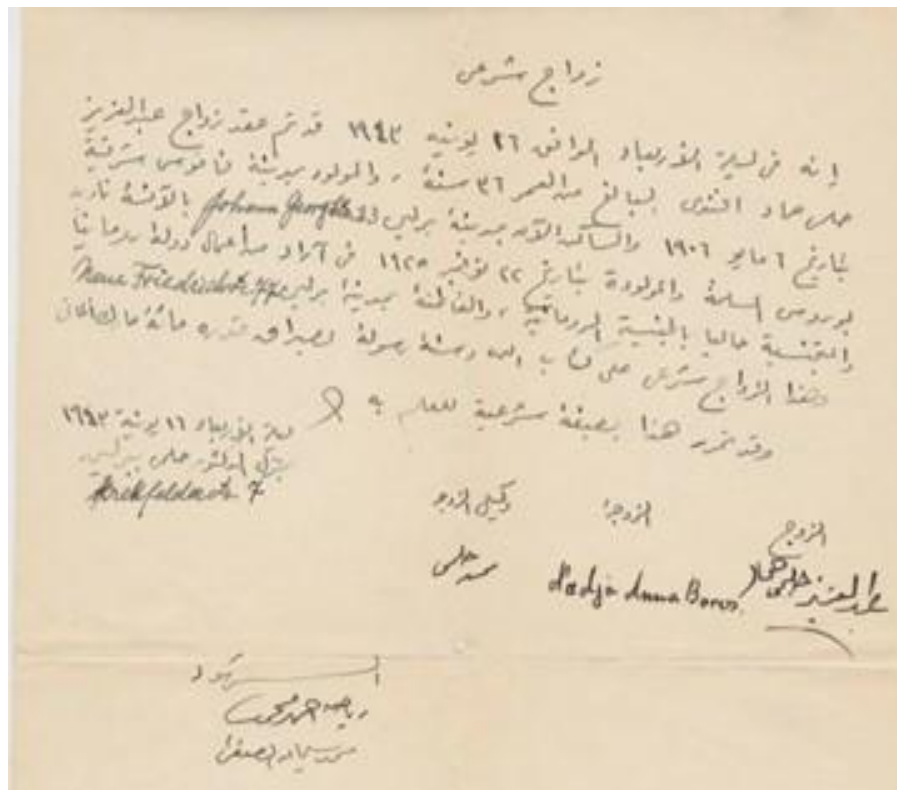 زواج شرعى
إنه فى ليلة الأربعاء الموافق ١٦ يونيه ١٩٤٣ قد تم عقد زواج عبدالعزيز
حلمى حماد البالغ من العمر ٣٦ سنة، والمولود بمدينة فاقوس شرقية
بتاريخ ٦ مايو ١٩٠٦ والساكن الآن بمدينة برلين Johann Georgstr 33 بالآنسة نادية
بوروس المسلمة والمولودة بتاريخ ٢٢ نوفمبر ١٩٢٥ فى آراد من أعمال دولة رومانيا
والمتجنسة حاليا بالجنسية الرومانية، والقاطنة بمدينة برلين Neue Friedrichstr 77
وهذا الزواج شرعى على كتاب الله وسنة رسوله بصداق قدره مائة مارك ألمانى
وقد تحرر هذا بصيغة شرعية للعلم به
ليلة الأربعاء ١٦ يونية ١٩٤٣
بمنزل الدكتور حلمى ببرلين
7
الزوج
الزوجة
وكيل الزوجة
عبدالعزيز حلمى حماد
Nadja Anna Boros.
محمد حلمى
الشهود
رياض أحمد محمد
محمد